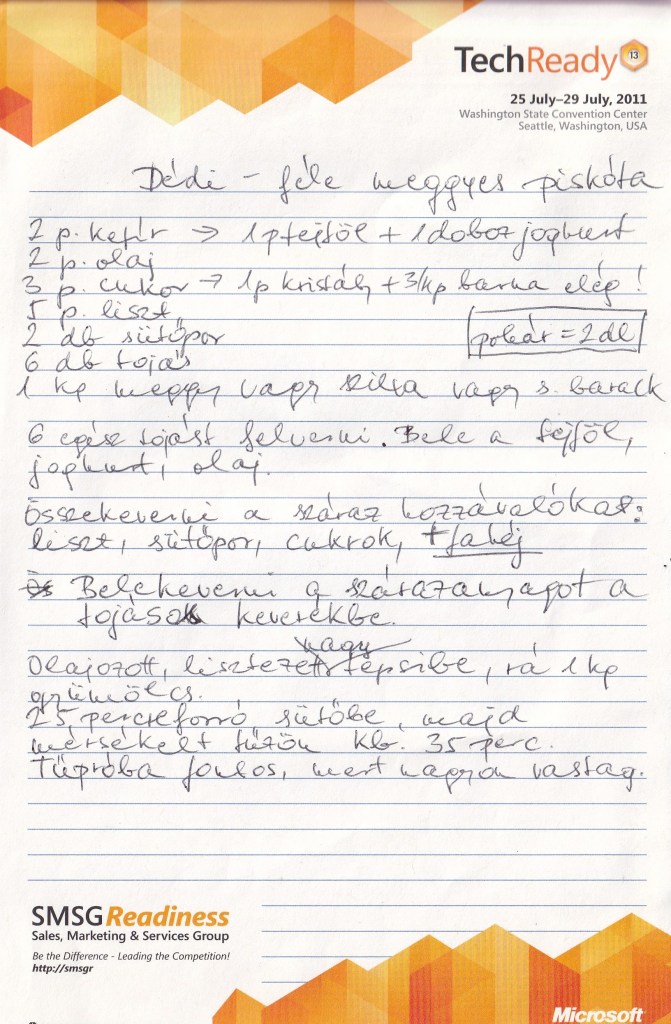 TechReady 13
25 July–29 July, 2011
Washington State Convention Center
Seattle, Washington, USA
Dédi - féle meggyes piskóta
2 p. kefir → 1 p tejföl + 1 doboz joghurt
2 p. olaj
3 p. cukor → 1p kristály + 3/4p barna elég!
5 p. liszt
2 db sütőpor
pohár = 2 dl
6 db tojás
1 kg meggy vagy szilva vagy s. barack
6 egész tojást felverni. Bele a tejföl,
joghurt, olaj.
Összekeverni a száraz hozzávalókat:
liszt, sütőpor, cukrok, + fahéj
Belekeverni a szárazanyagot a
tojásos keverékbe.
nagy
Olajozott, lisztezett tepsibe, rá 1 kg
gyümölcs.
25 percre forró sütőbe, majd
mérsékelt tűzön kb. 35 perc.
Tűpróba fontos, mert nagyon vastag.
SMSG Readiness
Sales, Marketing & Services Group
Be the Difference - Leading the Competition!
http://smsgr
Microsoft